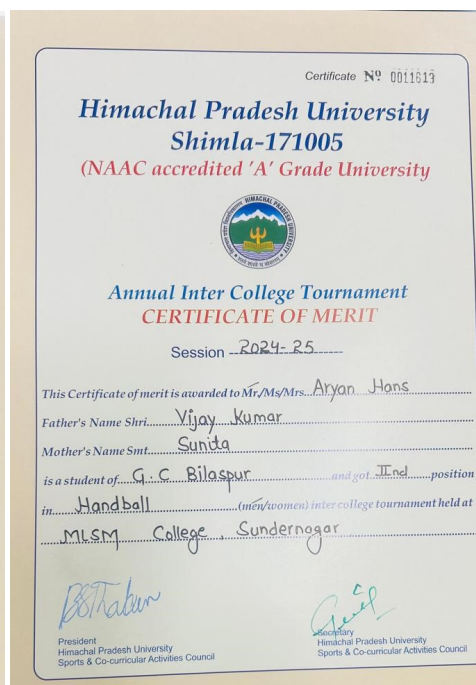 Certificate Nº 0011613
Himachal Pradesh University
Shimla-171005
(NAAC accredited 'A' Grade University
HIMACHAL PRADESH UNIVERSITY
Annual Inter College Tournament
CERTIFICATE OF MERIT
Session 2024-25
This Certificate of merit is awarded to Mr./Ms/Mrs. Aryan Hans
Father's Name Shri. Vijay Kumar
Mother's Name Smt. Sunita
is a student of G.C Bilaspur and got IInd position
in Handball (men/women) inter college tournament held at
MLSM College, Sundernagar
President
Himachal Pradesh University
Sports & Co-curricular Activities Council
Secretary
Himachal Pradesh University
Sports & Co-curricular Activities Council